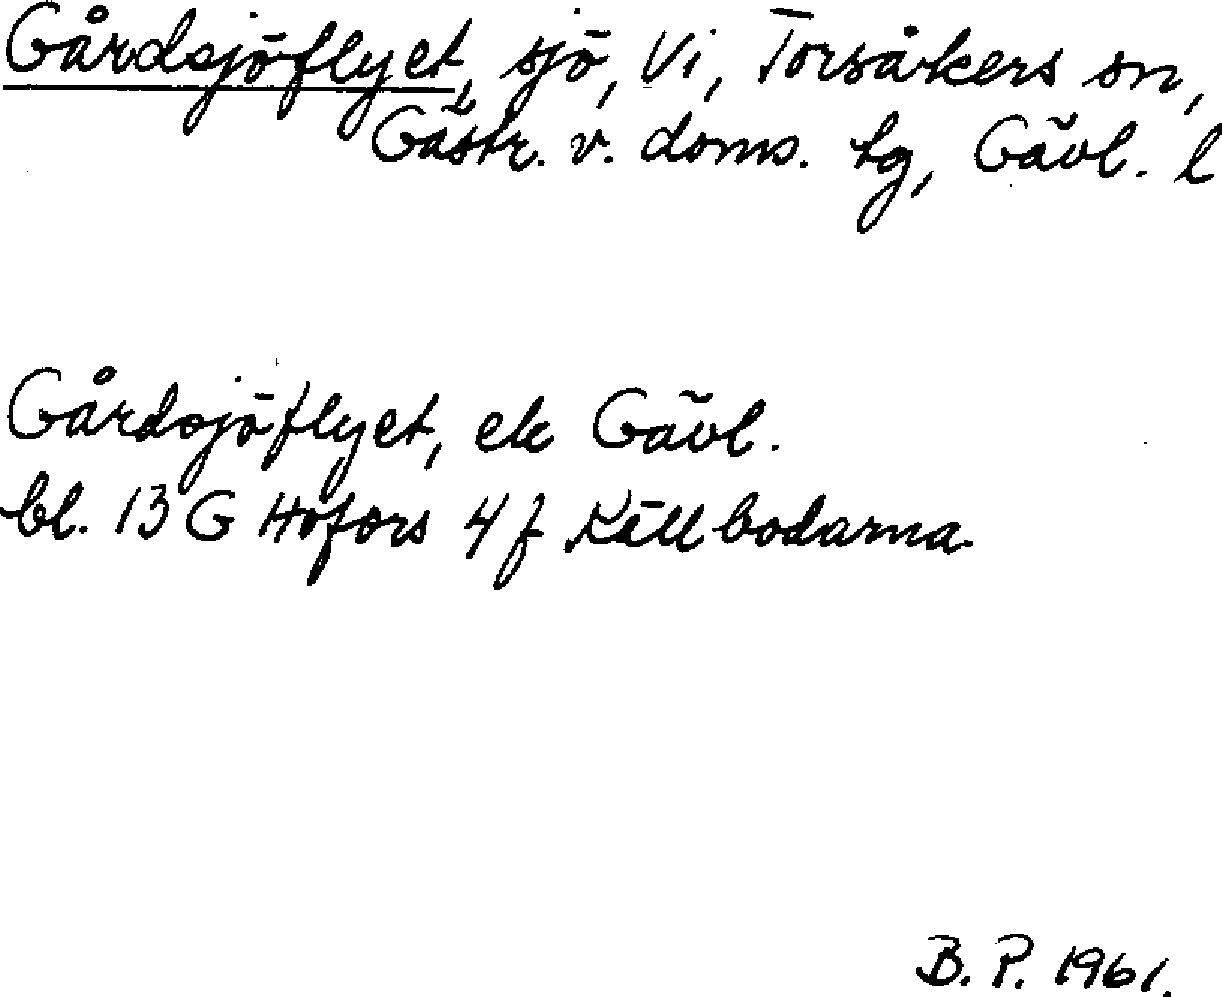 Gårdsjöflyet, sjö, Vi, Torsåkers sn,
Gästr. v. doms. tg, Gävl. l
Gårdsjöflyet, ek Gävl.
bl. 13 G Hofors 4 f Källbodarna
B. P. 1961.